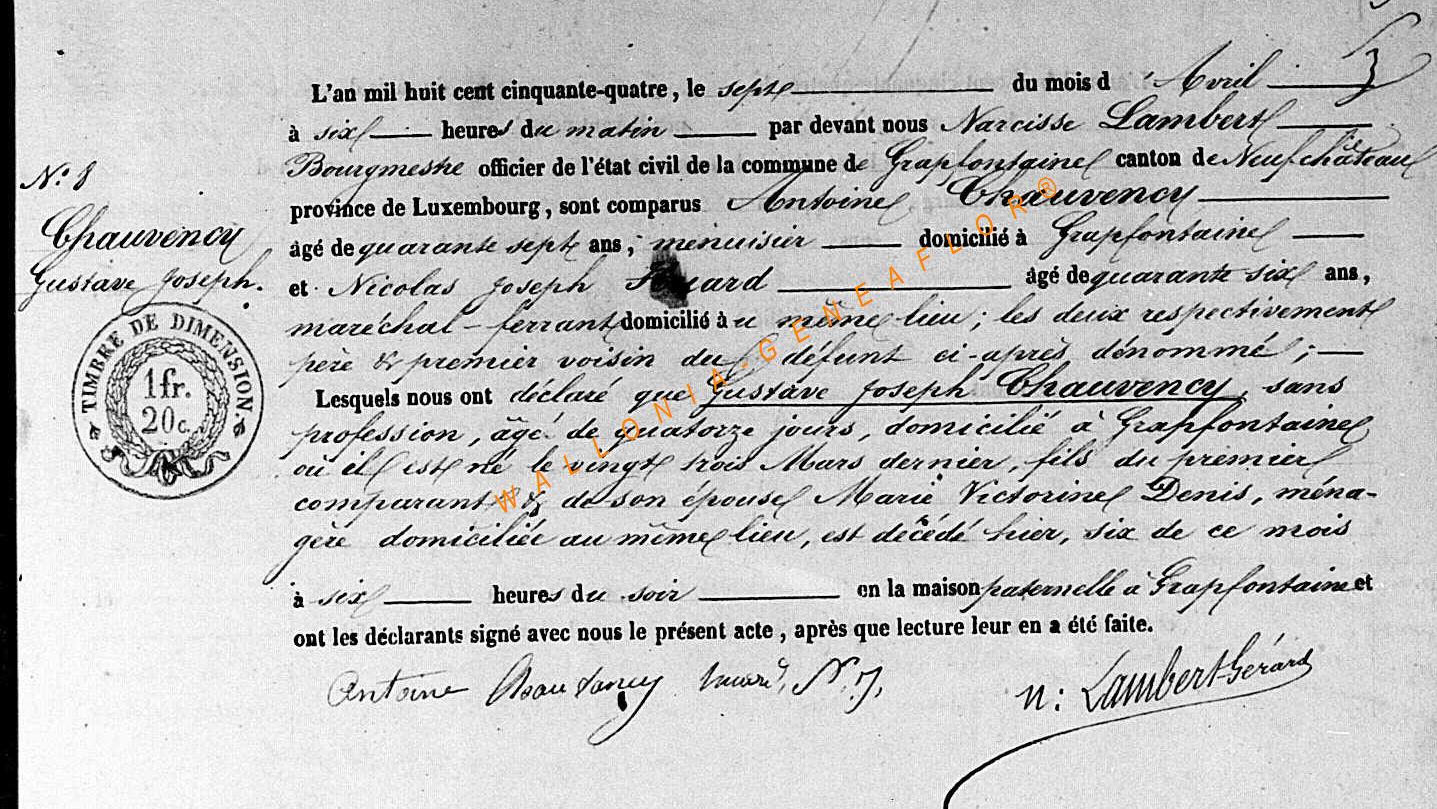 L'an mil huit cent cinquante-quatre, le sept du mois d'Avril
à six heures du matin par devant nous Narcisse Lambert
Bourgmestre officier de l'état civil de la commune de Grapfontaine canton de Neufchateau
province de Luxembourg, sont comparus Antoine Chauvency
âgé de quarante sept ans, menuisier domicilié à Grapfontaine
et Nicolas Joseph âgé de quarante six ans,
maréchal-ferrant domicilié au même lieu; les deux respectivement
père & premier voisin du défunt ci-après dénommé;
Lesquels nous ont déclaré que Gustave Joseph Chauvency, sans
profession, âgé de quatorze jours, domicilié à Grapfontaine
où il est né le vingt trois Mars dernier, fils du premier
comparant & de son épouse Marie Victorine Denis, ména-
gère domiciliée au même lieu, est décédé hier, six de ce mois
à six heures du soir en la maison paternelle à Grapfontaine et
ont les déclarants signé avec nous le présent acte, après que lecture leur en a été faite.
Antoine N. J.
n: Lambert-Gérard
N.° 8
Chauvency
Gustave Joseph.
TIMBRE DE DIMENSION.
1 fr.
20 c.
WALLONIA-GENEAFLOR®